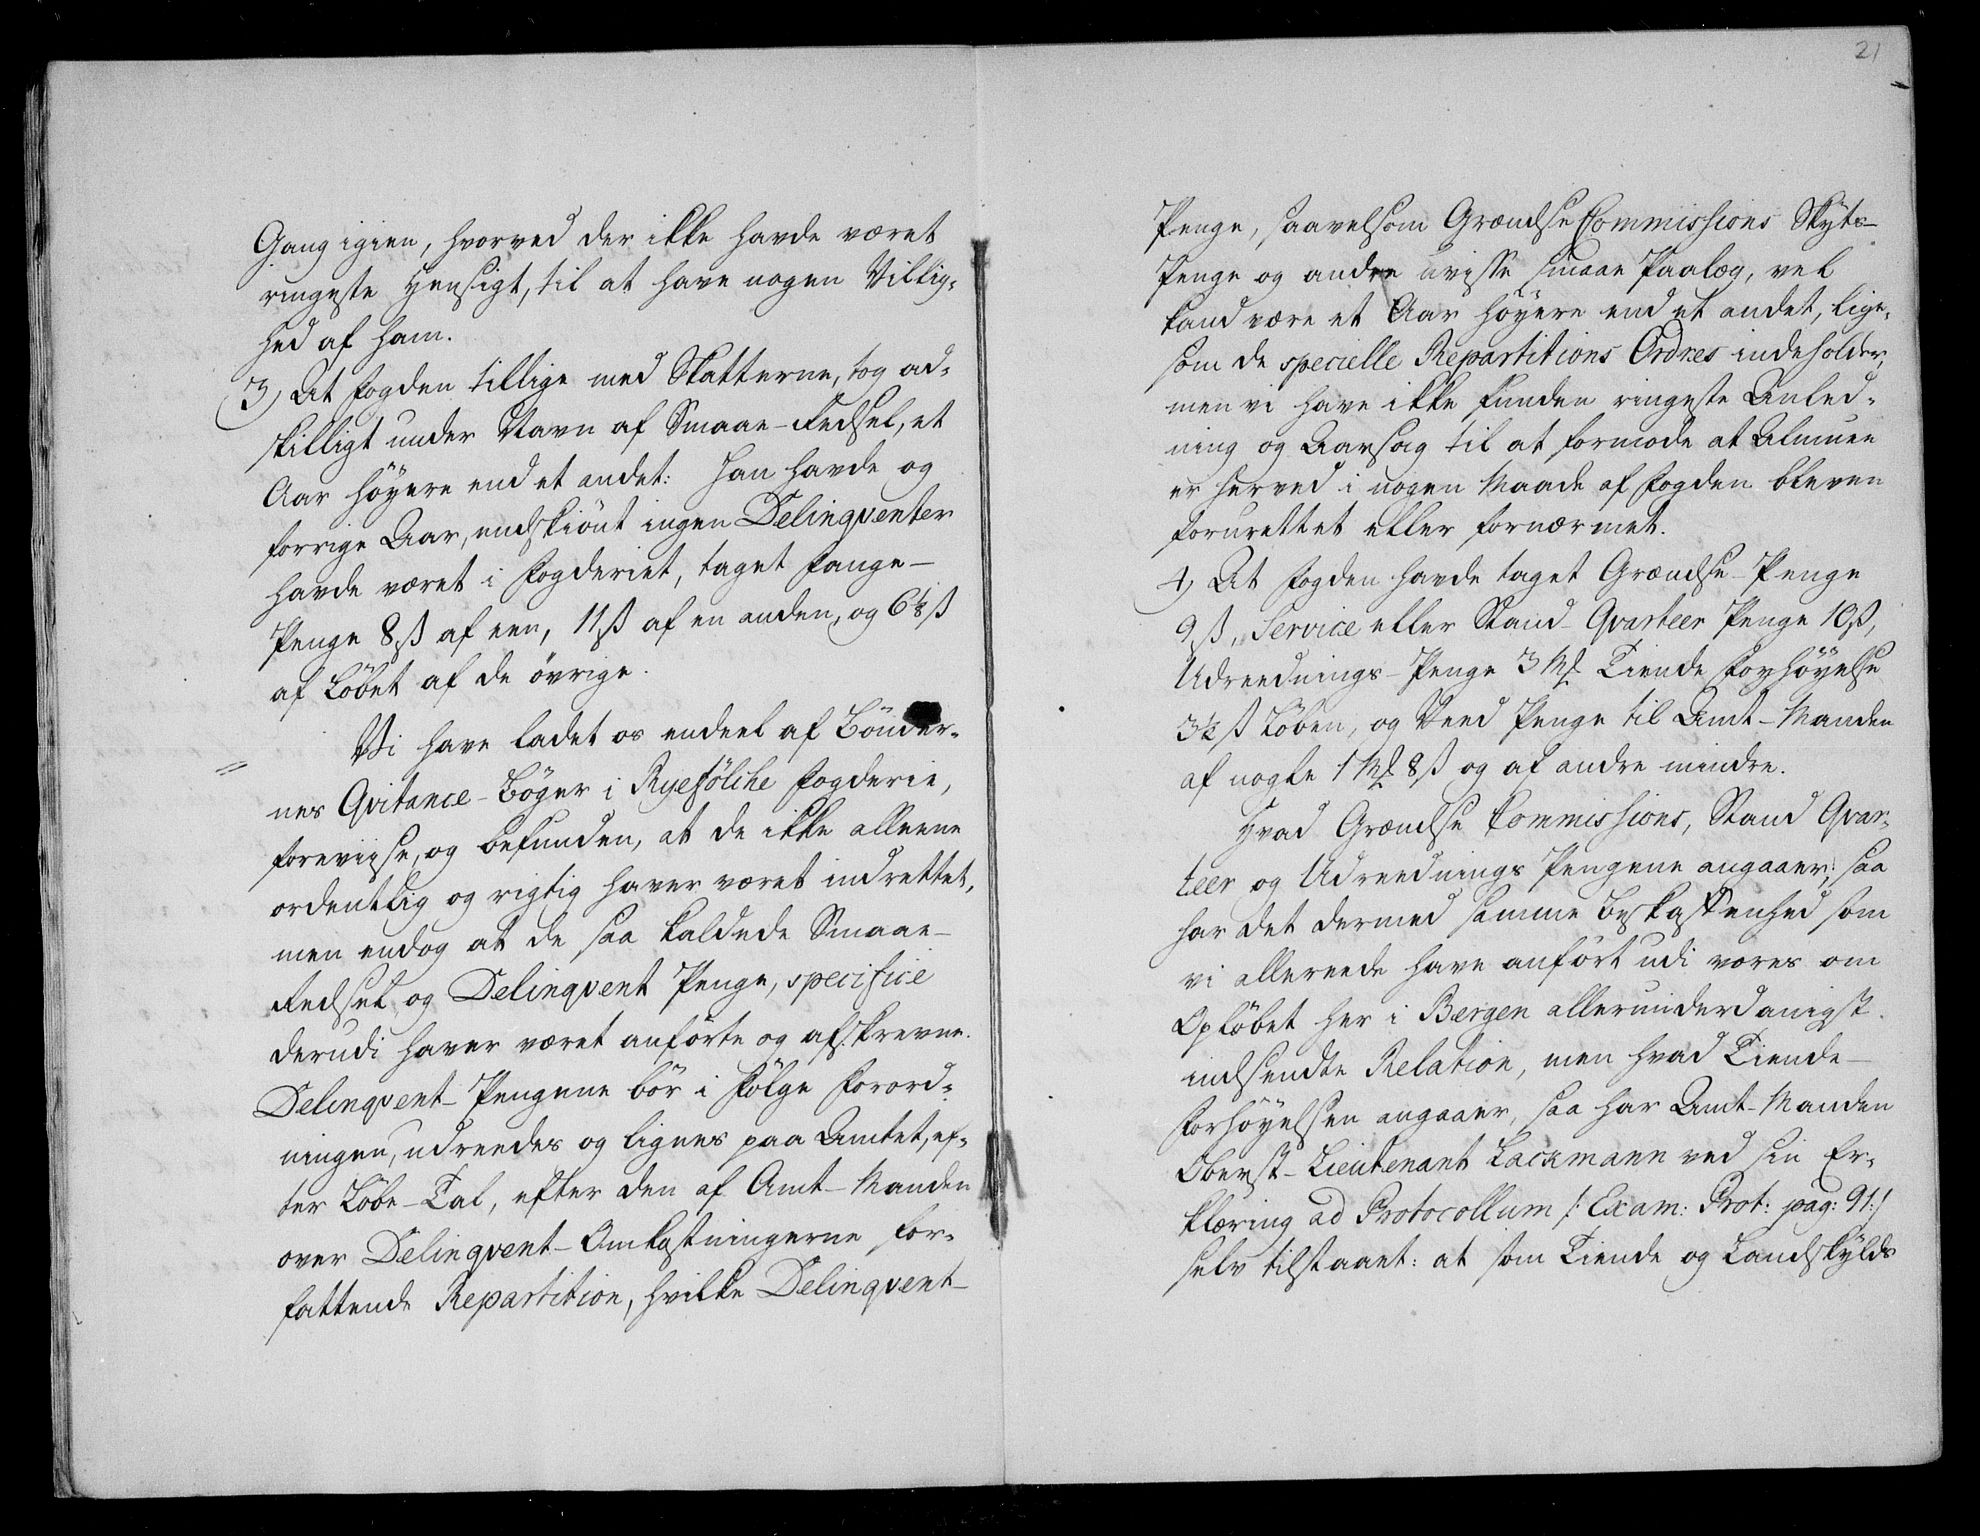 Gang igien, hvorved der ikke havde været
ringeste Hensigt, til at have nogen Villig-
hed af ham.
3, At Fogden tillige med Skatterne, tog ad-
skilligt under Navn af Smaae-Redsel, et
Aar höyere end et andet: Han havde og
forrige Aar, endskiönt ingen Delinqventer
havde været i Fogderiet, taget Fange-
Penge 8 ß af een, 11 ß af en anden, og 6½ ß
af Löbet af de övrige.
Vi have ladet os endeel af Bönder-
nes Qvitance-Böger i Ryefölche Fogderie,
foreviise, og befunden, at de ikke alleene
ordentlig og rigtig haver været indrettet,
men endog at de saa kaldede Smaae-
Redsel og Delinqvent Penge, specifice
derudi haver været anförte og afskrevne.
Delinqvent-Pengene bör i Fölge Forord-
ningen, udreedes og lignes paa Amtet, ef-
ter Löbe-Tal, efter den af Amt-Manden
over Delinqvent-Omkostningerne for-
fattende Repartition, hvilke Delinqvent-
21
Penge, saavelsom Grændse Commissions Skyts-
Penge og andre uvisse smaae Paalæg, vel
kand være et Aar höyere end et andet, lige-
som de specielle Repartitions Ordres indeholder;
men vi have ikke funden ringeste Anled-
ning og Aarsag til at formode at Almuen
er herved i nogen Maade af Fogden bleven
forurettet eller fornærmet.
4, At Fogden havde taget Grændse-Penge
9 ß, Service eller Stand-Qvarteer Penge 10 ß,
Udreednings-Penge 3 Mk Tiende Forhöyelse
3½ ß Löben, og Veed Penge til Amt-Manden
af nogle 1 Mk 8 ß og af andre mindre.
Hvad Grændse Commissions, Stand Qvar-
teer og Udreednings Pengene angaaer; saa
har det dermed samme Beskaffenhed som
vi allereede have anfört udi vores om
Oplöbet her i Bergen allerunderdanigst
indsendte Relation, men hvad Tiende-
Forhöyelsen angaaer, saa har Amt-Manden
Oberst-Lieutenant Lackmann ved sin Er-
klæring ad Protocollum /: Exam: Prot: pag: 91:/
selv tilstaaet: at som Tiende og Landskylds